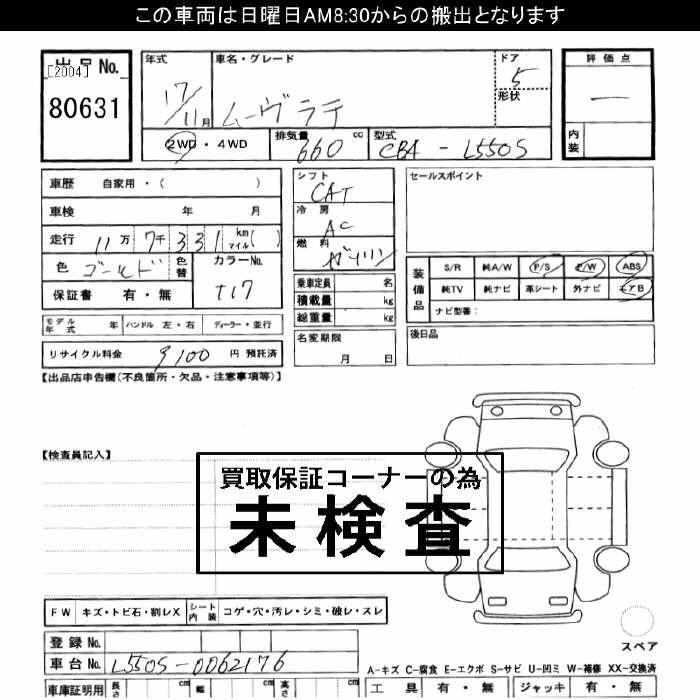 この車両は日曜日AM8:30からの搬出となります
出品No.
[2004]
80631
年式
17/11月
車名・グレード
ムーヴラテ
ドア
5
形状
評価点
―
内装
2WD・4WD
排気量
660 cc
型式
CBA - L550S
車歴 自家用・( )
車検 年 月
走行 11万7千331 km マイル( )
色 ゴールド 色替
カラーNo.
T17
保証書 有・無
シフト
CAT
冷房
AC
燃料
ガソリン
乗車定員 名
積載量 kg
総重量 kg
セールスポイント
装備品
S/R 純A/W P/S P/W ABS
純TV 純ナビ 革シート 外ナビ エアB
ナビ型番:
モデル年式 年 ハンドル 左・右 ディーラー・並行
リサイクル料金 9100 円 預託済
名変期限
月 日
後日品
【出品店申告欄(不良箇所・欠品・注意事項等)】
【検査員記入】
買取保証コーナーの為
未検査
FW キズ・トビ石・割レX シート内装 コゲ・穴・汚レ・シミ・破レ・スレ
登録No.
車台No. L550S-0062176
スペア
A-キズ C-腐食 E-エクボ S-サビ U-凹ミ W-補修 XX-交換済
車庫証明用 長さ cm 幅 cm 高さ cm
工具 有・無 ジャッキ 有・無